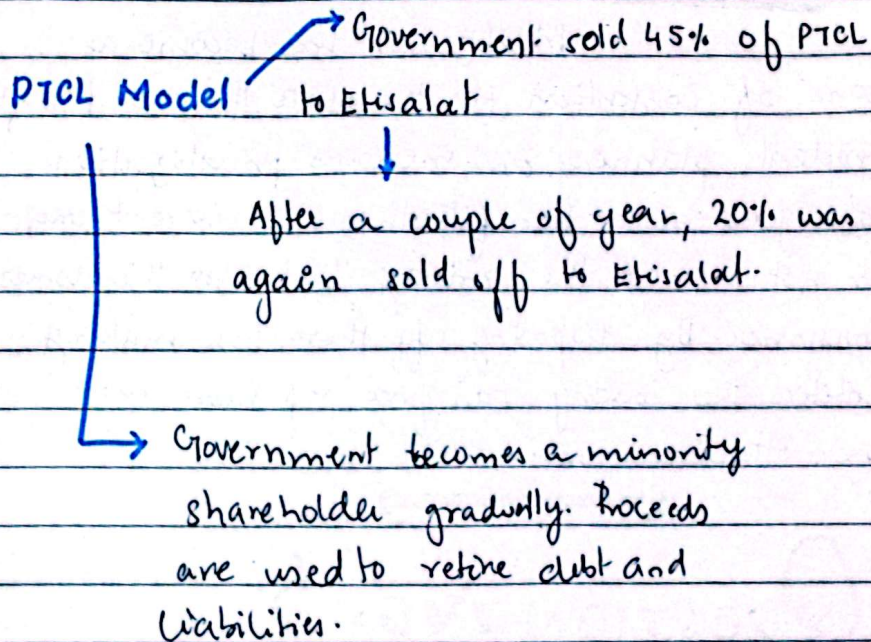 Government sold 45% of PTCL
PTCL Model
to Etisalat
After a couple of year, 20% was
again sold off to Etisalat.
Government becomes a minority
shareholder gradually. Proceeds
are used to retire debt and
liabilities.